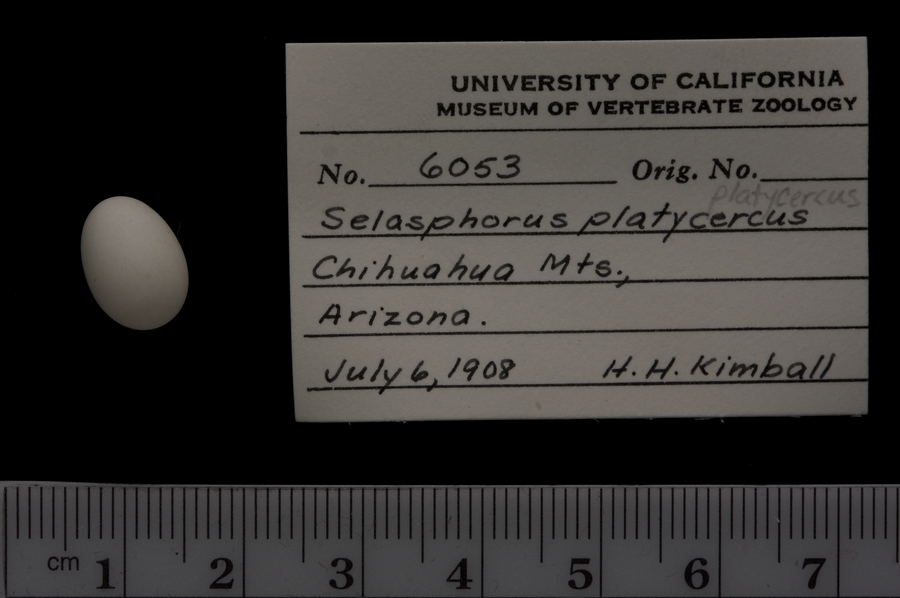 UNIVERSITY OF CALIFORNIA
MUSEUM OF VERTEBRATE ZOOLOGY
No. 6053 Orig. No.
platycercus
Selasphorus platycercus
Chihuahua Mts.,
Arizona.
July 6, 1908 H. H. Kimball
cm 1 2 3 4 5 6 7